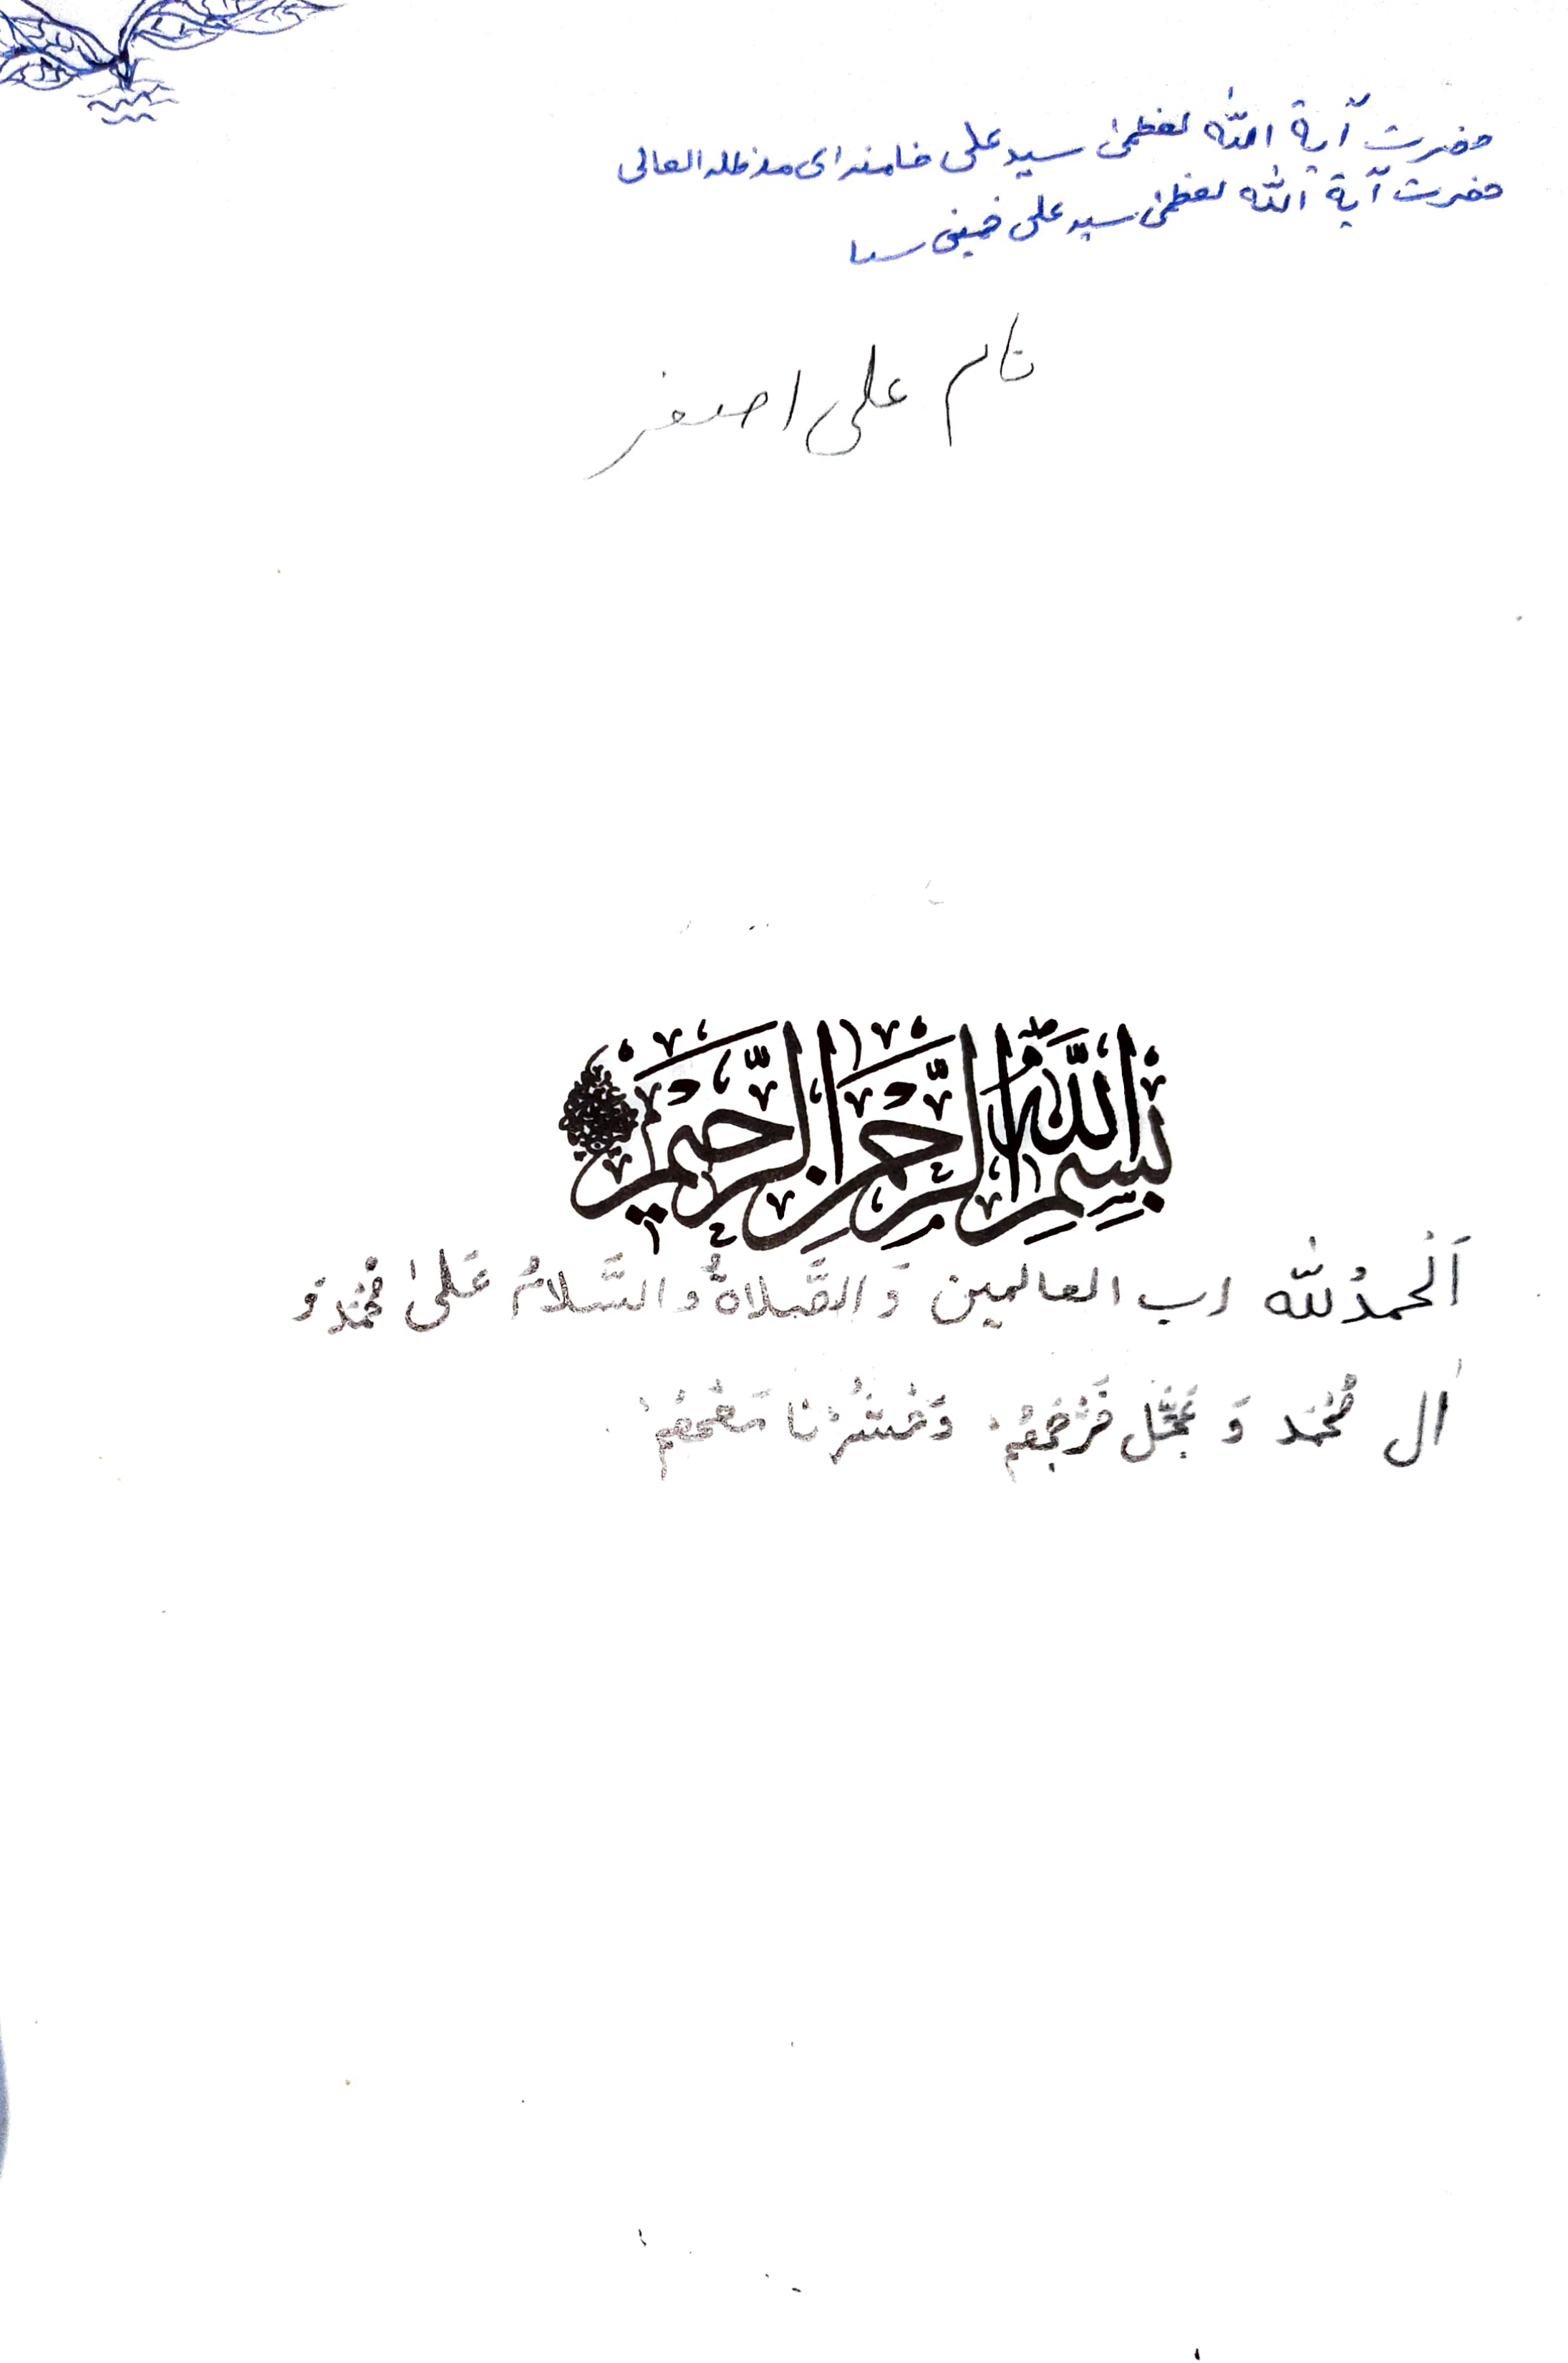 حضرت آیة الله لعظمیٰ سید علی خامنه ای مدظله العالی
حضرت آیة الله لعظمیٰ سید علی خمینی سیستا
نام علی اصغر
بِسْمِ اللَّهِ الرَّحْمَٰنِ الرَّحِيمِ
اَلْحمدُ لله رب العالمین وَ الصَّلاةُ والسَّلامُ عَلیٰ مُحَمَّد وَ
ال مُحَمَّد وَ عَجِّل فَرَجَهُمْ وَحْشُرْنا مَعَهُمْ